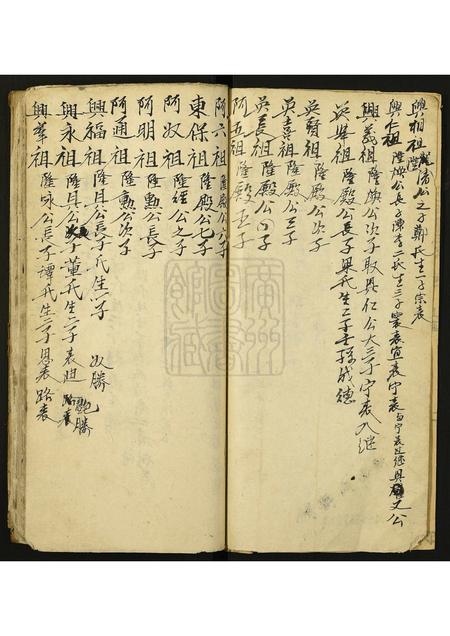 興相祖 隆濤公之子鄭氏生一子宗表
興仁祖 隆旗公長子陳李二氏生三子寰表宣表宁表
興義祖 隆旗公次子取興仁公大三子宁表入継
英举祖 隆殿公長子吳氏生二子壬孫成德
英賢祖 隆殿公次子
英喜祖 隆殿公三子
英長祖 隆殿公四子
阿五祖 隆殿五子
阿六祖 隆殿公六子
東保祖 隆殿公七子
阿奴祖 隆經公之子
阿明祖 隆勲公長子
阿通祖 隆勲公次子
興福祖 隆具公長子氏生一子 奴勝
興永祖 隆具公次子董氏生六子表迎
興奉祖 隆咏公長子譚氏生二子恩表路表
廣州圖書館藏